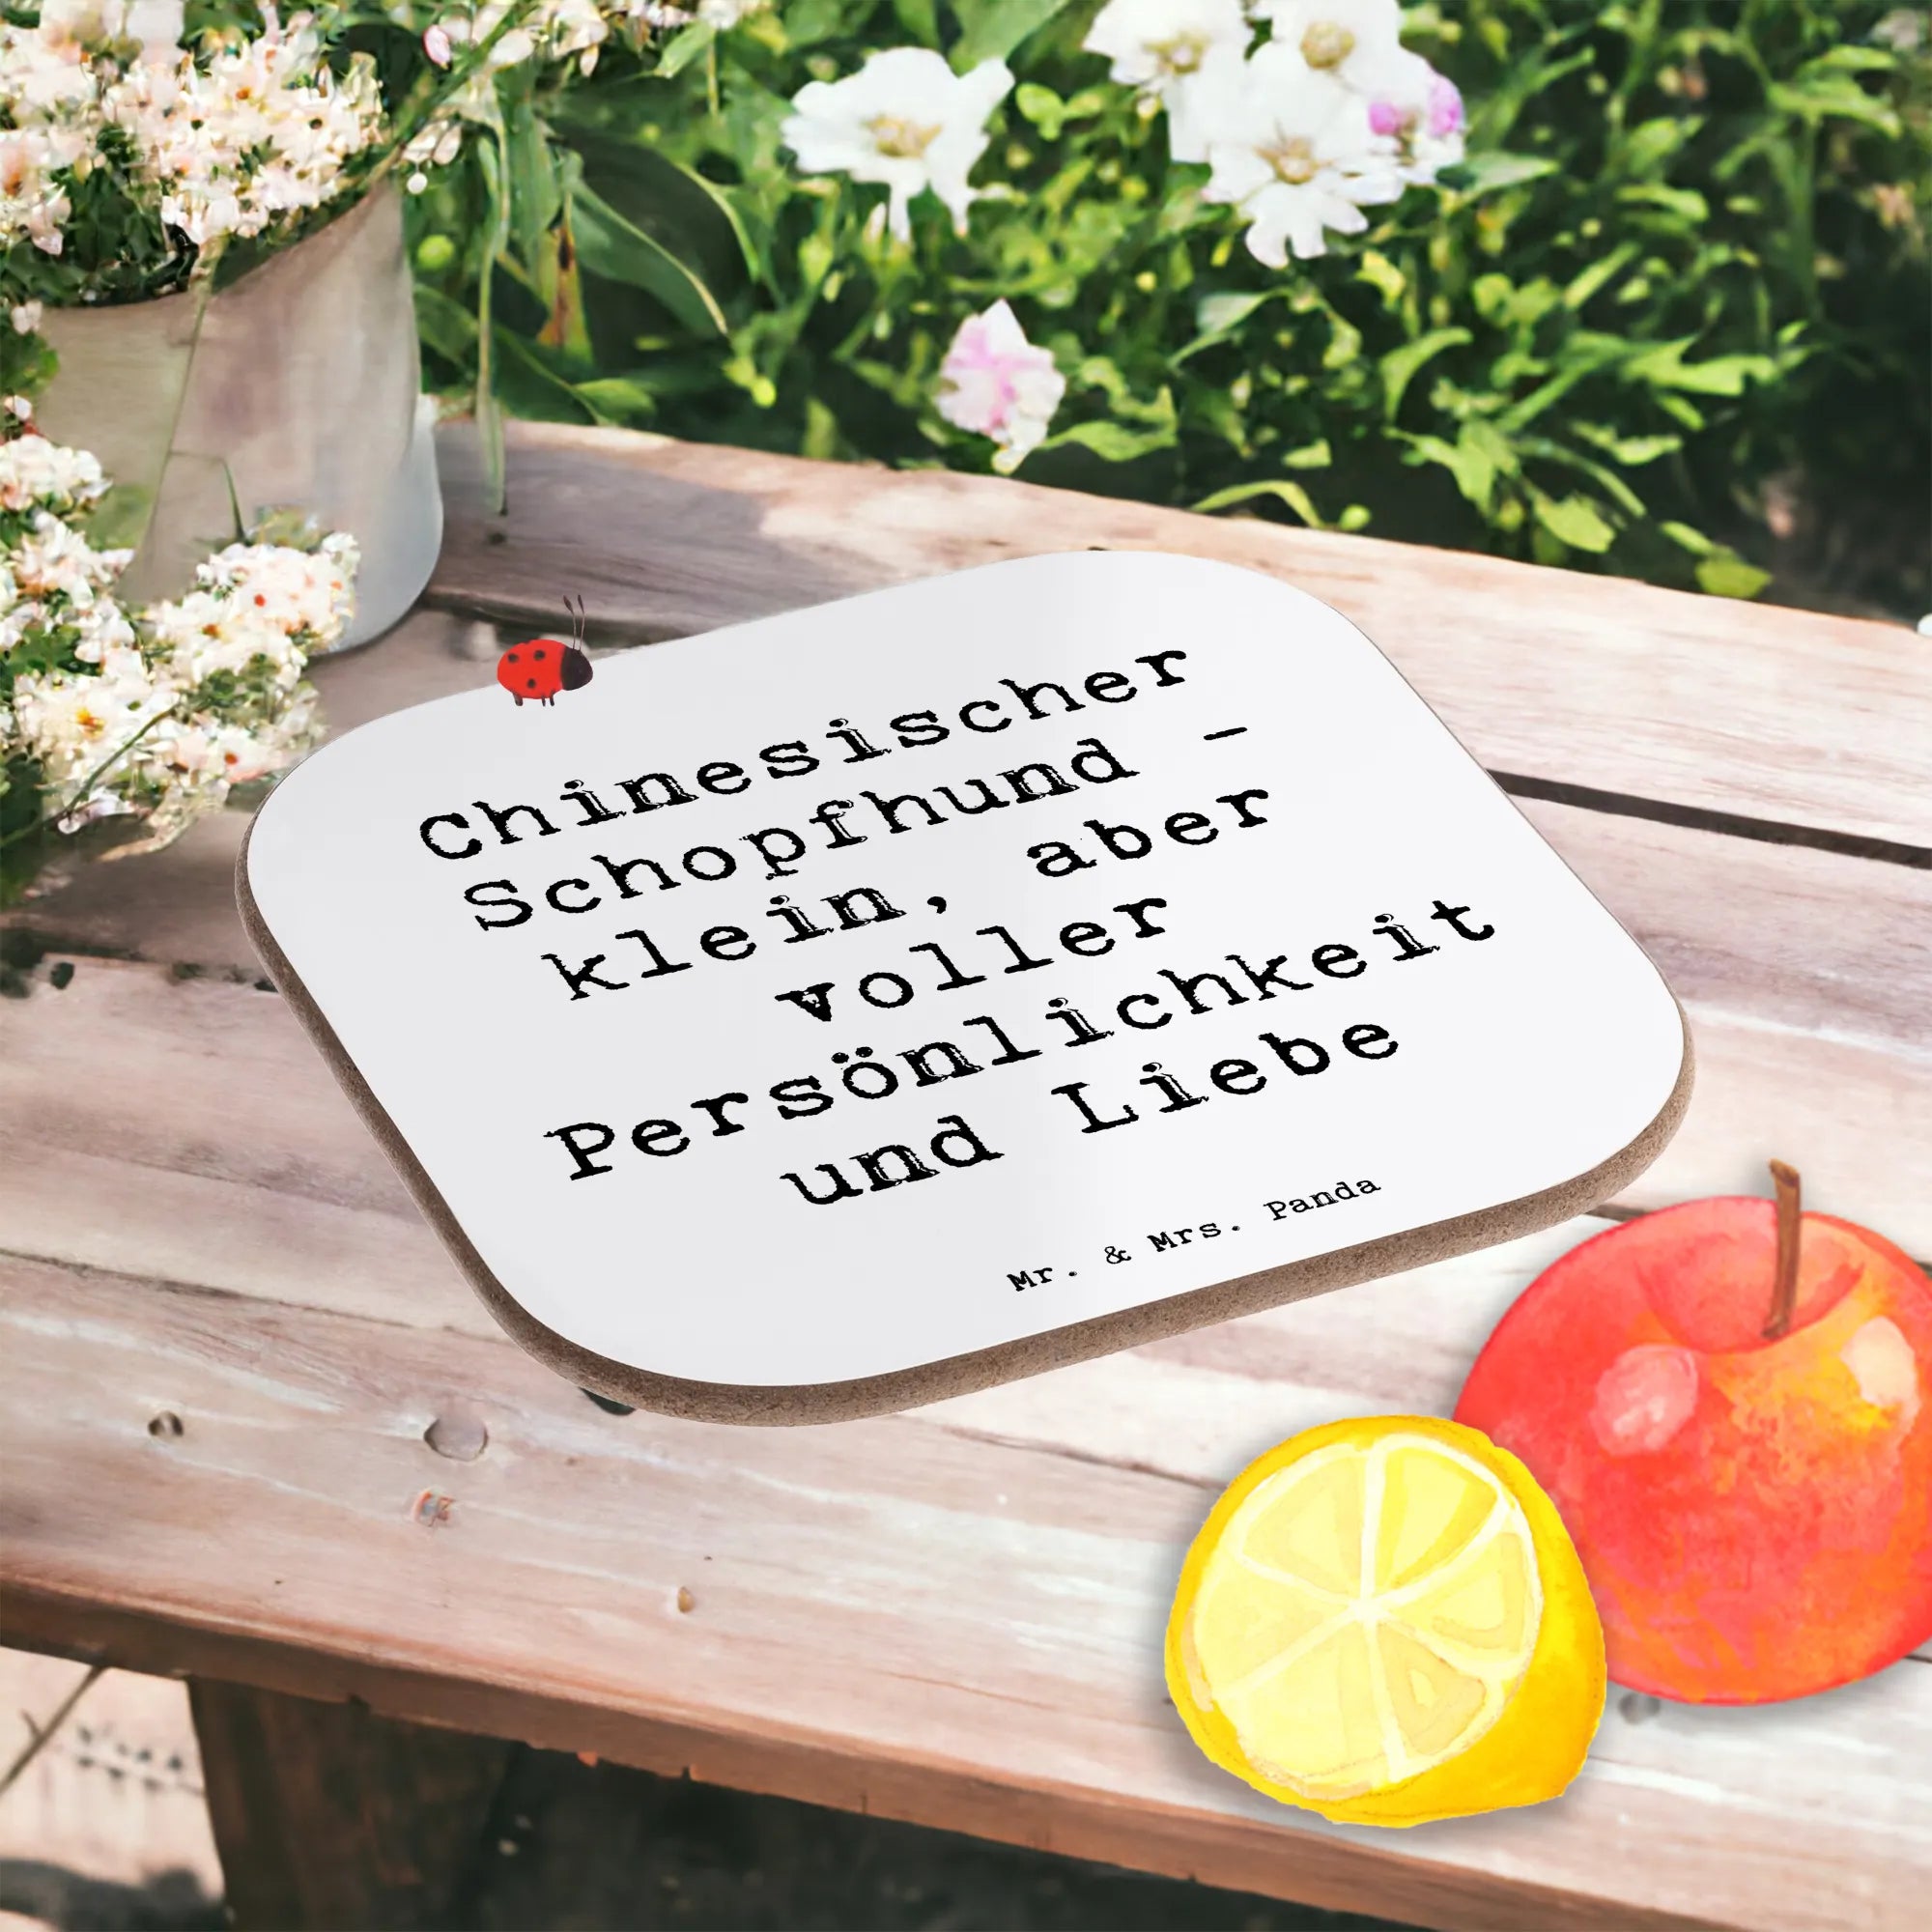 Chinesischer
Schopfhund -
klein, aber
voller
Persönlichkeit
und Liebe
Mr. & Mrs. Panda